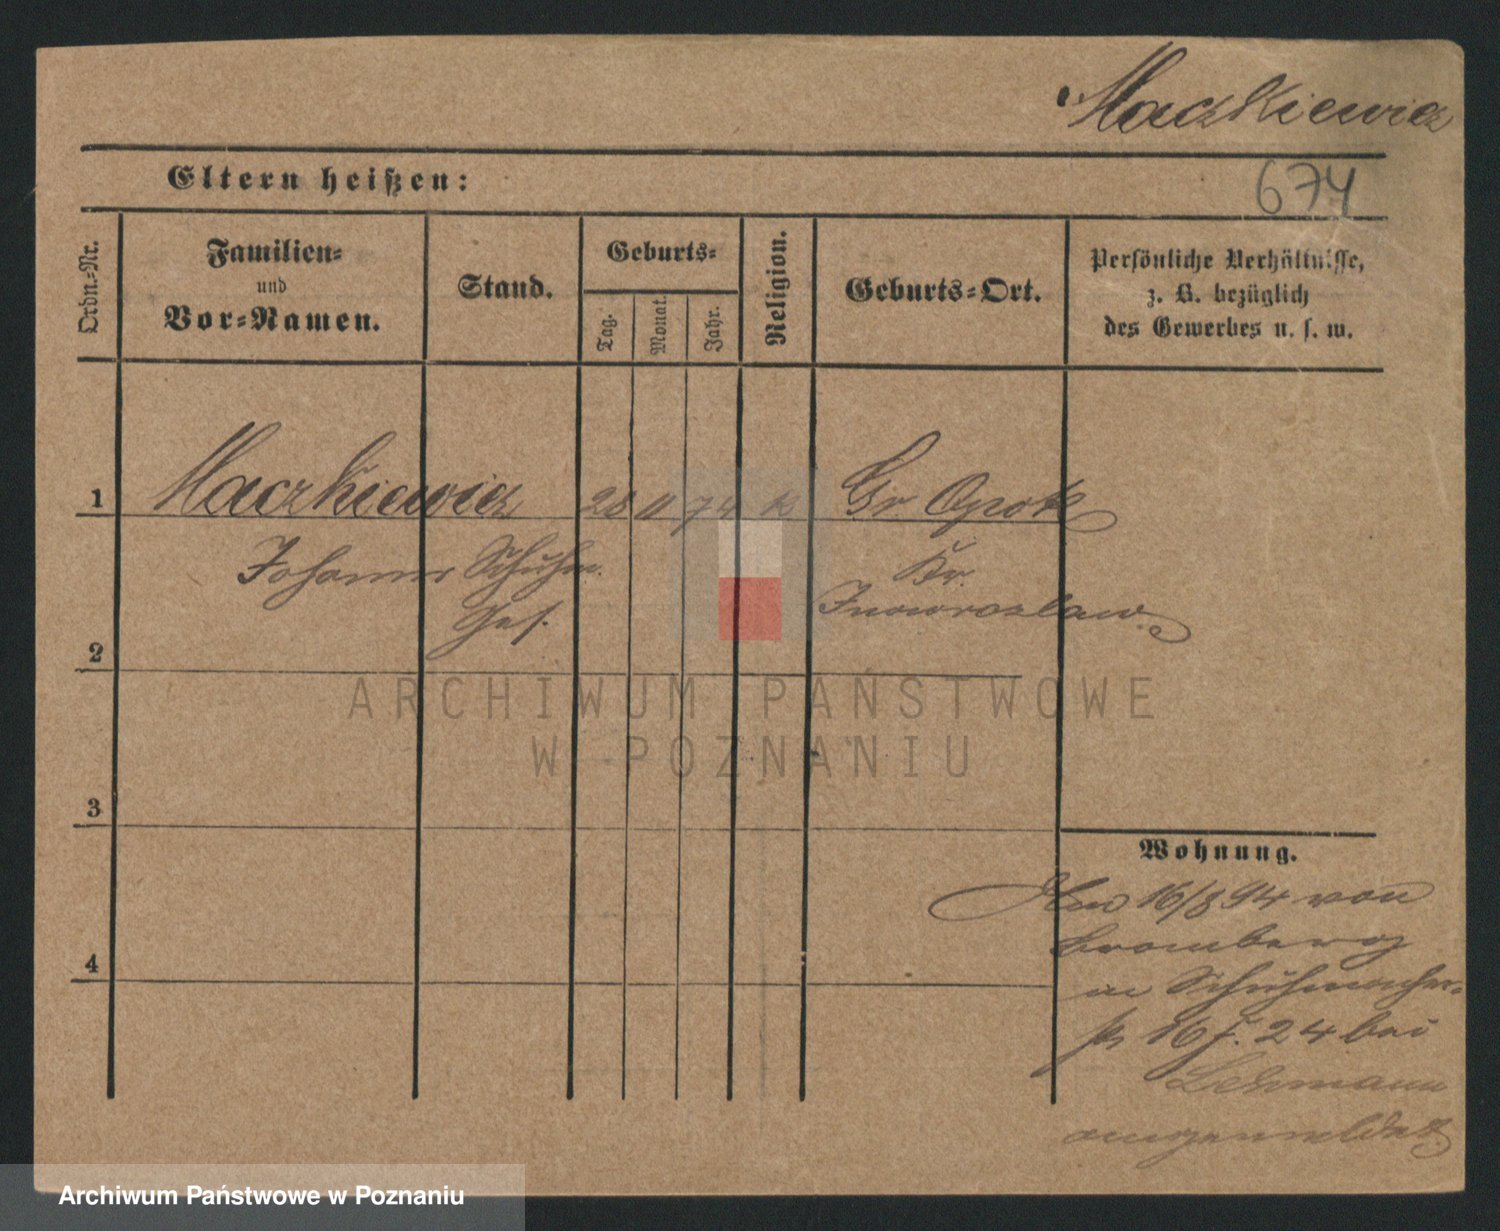 Maczkiewicz
Eltern heißen:
674
Ordn.-Nr.
Familien-
und
Vor-Namen.
Stand.
Geburts-
Tag.
Monat.
Jahr.
Religion.
Geburts-Ort.
Persönliche Verhältnisse,
z. B. bezüglich
des Gewerbes u. s. w.
1 Maczkiewicz 28 11 74 k Gr Opok
Johann Schuhm. Kr.
Ges. Inowrazlaw.
2
ARCHIWUM PAŃSTWOWE
W POZNANIU
3
Wohnung.
Am 16/8 94 von
Bromberg
in Schuhmacher-
16 f. 24 bei
4
Lehmann
angemeldet
Archiwum Państwowe w Poznaniu